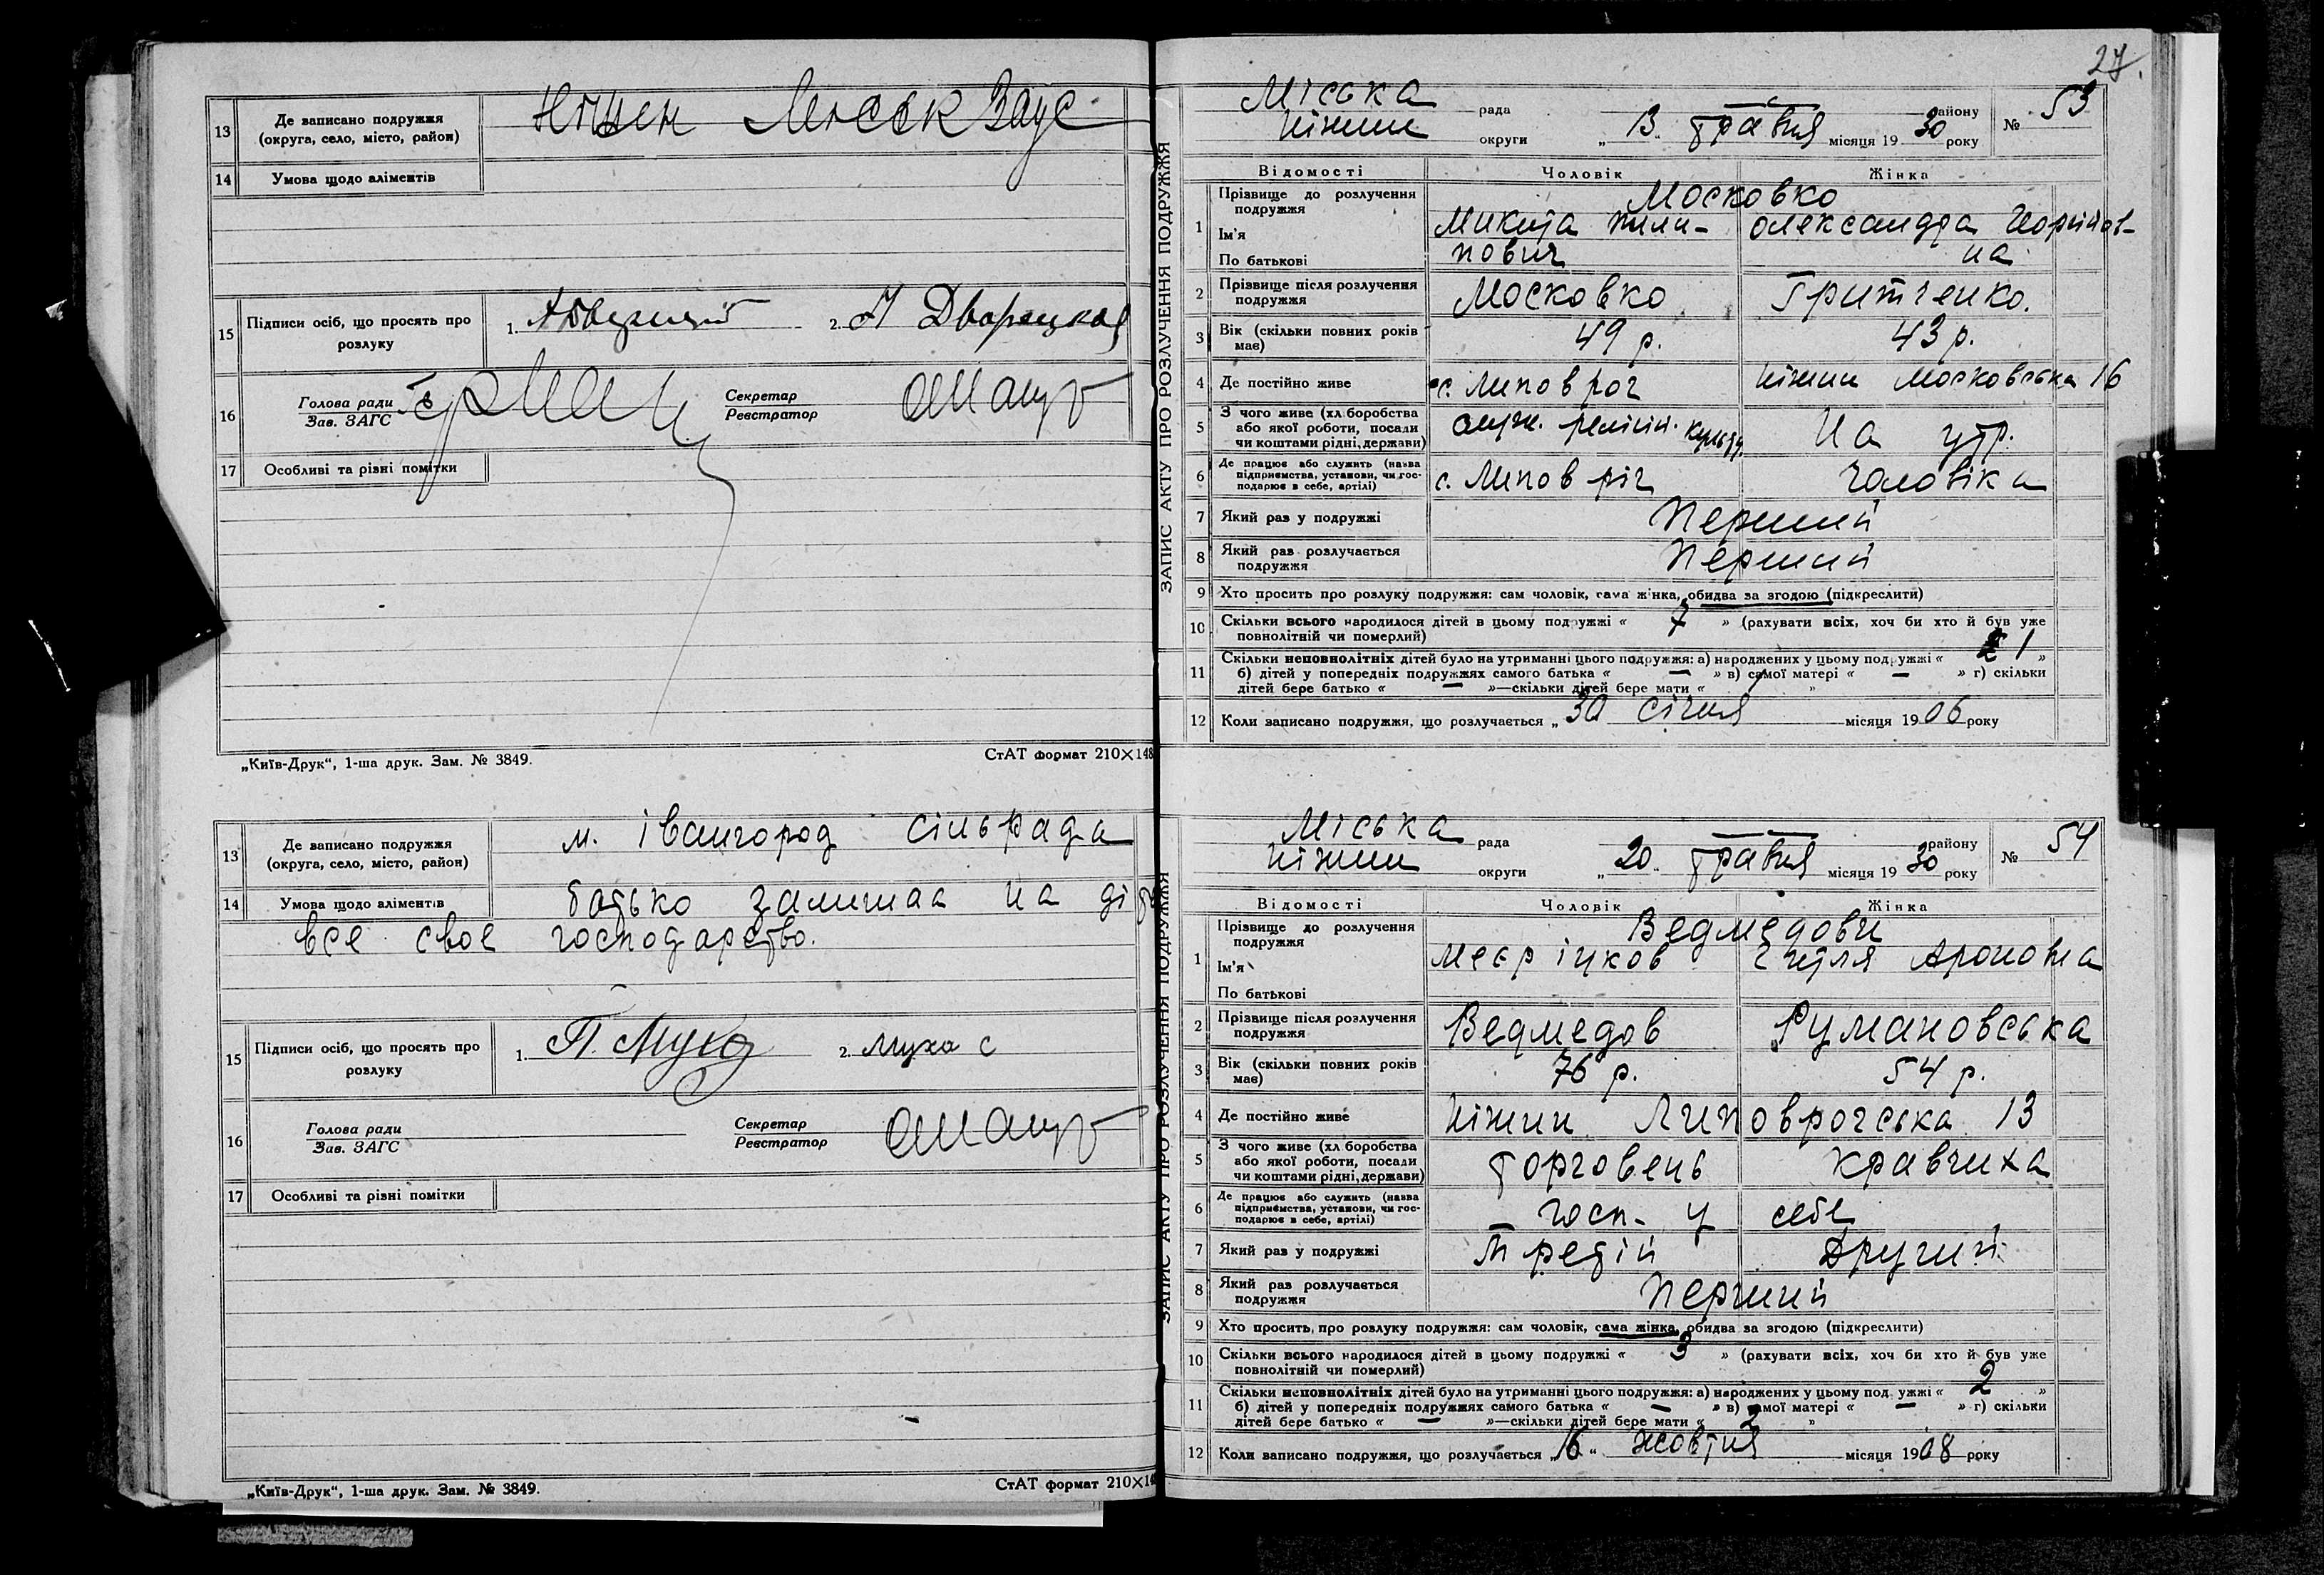 13 Де записано подружжя (округа, село, місто, район) Ніжен
14 Умова щодо аліментів
15 Підписи осіб, що просять про розлуку 1. 2. Дворецкая
16 Голова ради Зав. ЗАГС Секретар Реєстратор
17 Особливі та різні помітки
„Київ-Друк“, 1-ша друк. Зам. № 3849. СтАТ формат 210×148
13 Де записано подружжя (округа, село, місто, район) м. Івангород сільрада
14 Умова щодо аліментів батько залишає на
все своє господарство.
15 Підписи осіб, що просять про розлуку 1. П. Муха 2. Муха С
16 Голова ради Зав. ЗАГС Секретар Реєстратор
17 Особливі та різні помітки
„Київ-Друк“, 1-ша друк. Зам. № 3849. СтАТ формат 210×14
27.
ЗАПИС АКТУ ПРО РОЗЛУЧЕННЯ ПОДРУЖЖЯ
Міська рада — району № 53
Ніжин округи „13“ травня місяця 1930 року
Відомості Чоловік Жінка
1 Прізвище до розлучення подружжя Московко
Ім'я Микита Пили- Олександра
По батькові пович на
2 Прізвище після розлучення подружжя Московко Гритченко.
3 Вік (скільки повних років має) 49 р. 43 р.
4 Де постійно живе с. Липоврог Ніжин Московська 16
5 З чого живе (хліборобства або якої роботи, посади чи коштами рідні, держави) служ. релігій. культу. На утр.
6 Де працює або служить (назва підприємства, установи, чи господарює в себе, артілі) с. Липов ріг чоловіка
7 Який раз у подружжі Перший
8 Який раз розлучається подружжя Перший
9 Хто просить про розлуку подружжя: сам чоловік, сама жінка, обидва за згодою (підкреслити)
10 Скільки всього народилося дітей в цьому подружжі « 7 » (рахувати всіх, хоч би хто й був уже повнолітній чи померлий)
11 Скільки неповнолітніх дітей було на утриманні цього подружжя: а) народжених у цьому подружжі « 1 »
б) дітей у попередніх подружжях самого батька « — » в) самої матері « — » г) скільки
дітей бере батько « »—скільки дітей бере мати « »
12 Коли записано подружжя, що розлучається „30 січня місяця 1906 року
ЗАПИС АКТУ ПРО РОЗЛУЧЕННЯ ПОДРУЖЖЯ
Міська рада — району № 54
Ніжин округи „20“ травня місяця 1930 року
Відомості Чоловік Жінка
1 Прізвище до розлучення подружжя Ведмедови
Ім'я Меєр Іцков Ароновна
По батькові
2 Прізвище після розлучення подружжя Ведмедов Румановська
3 Вік (скільки повних років має) 76 р. 54 р.
4 Де постійно живе Ніжин Липоврогська 13
5 З чого живе (хліборобства або якої роботи, посади чи коштами рідні, держави) торговець кравчиха
6 Де працює або служить (назва підприємства, установи, чи господарює в себе, артілі) госп. у себе
7 Який раз у подружжі Третій Другий
8 Який раз розлучається подружжя Перший
9 Хто просить про розлуку подружжя: сам чоловік, сама жінка, обидва за згодою (підкреслити)
10 Скільки всього народилося дітей в цьому подружжі « 3 » (рахувати всіх, хоч би хто й був уже повнолітній чи померлий)
11 Скільки неповнолітніх дітей було на утриманні цього подружжя: а) народжених у цьому подружжі « 2 »
б) дітей у попередніх подружжях самого батька « — » в) самої матері « — » г) скільки
дітей бере батько « — »—скільки дітей бере мати « 2 »
12 Коли записано подружжя, що розлучається „16“ жовтня місяця 1908 року